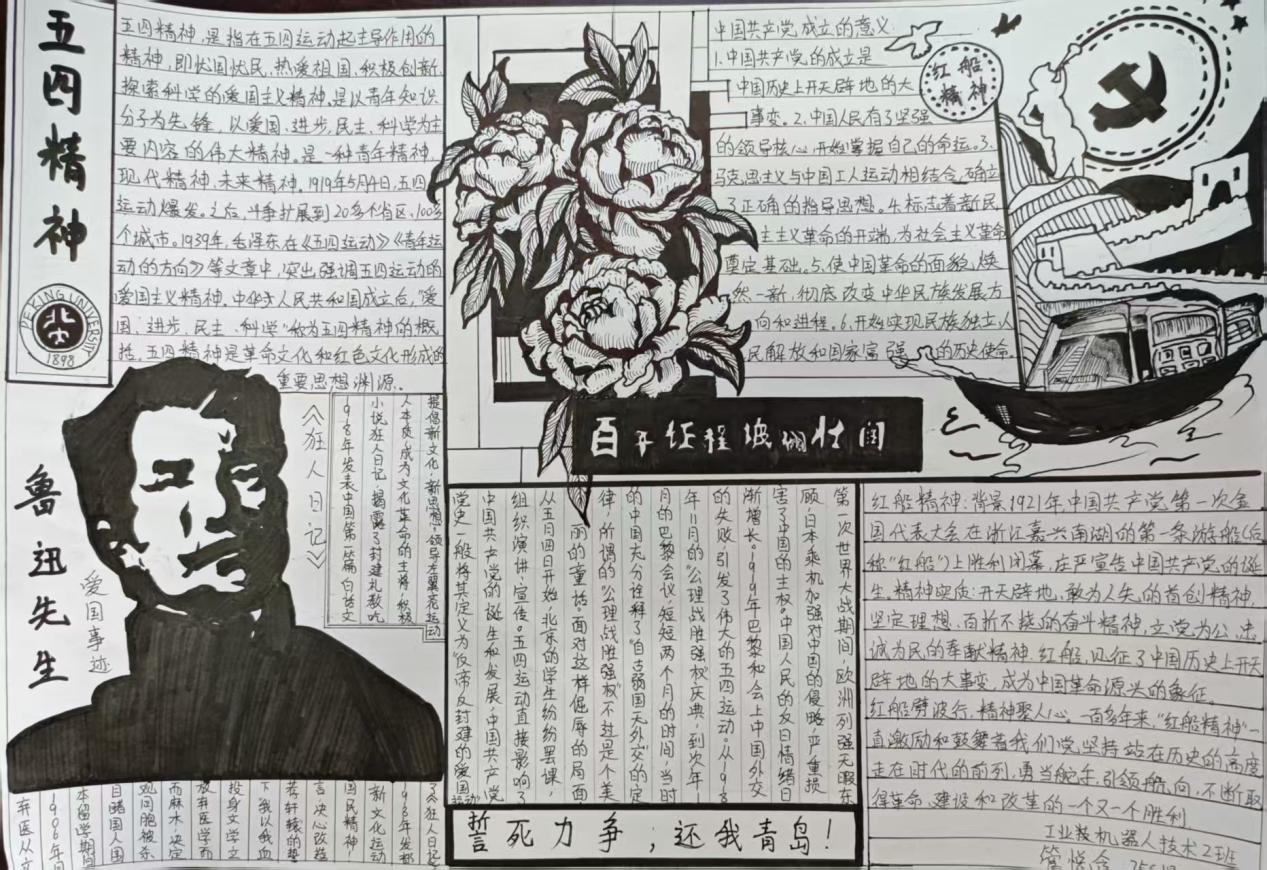 五四精神
PEKING UNIVERSITY
1898
五四精神,是指在五四运动起主导作用的
精神,即忧国忧民,热爱祖国,积极创新,
探索科学的爱国主义精神。是以青年知识
分子为先锋,以爱国、进步、民主、科学为主
要内容的伟大精神。是一种青年精神,
现代精神、未来精神。1919年5月4日,五四
运动爆发。之后,斗争扩展到20多个省区、100多
个城市。1939年,毛泽东在《五四运动》《青年运
动的方向》等文章中,突出强调五四运动的
爱国主义精神,中华人民共和国成立后,"爱
国、进步、民主、科学"称为五四精神的概
括。五四精神是革命文化和红色文化形成的
重要思想渊源。
中国共产党成立的意义:
1.中国共产党的成立是
中国历史上开天辟地的大
事变。2.中国人民有了坚强
的领导核心,开始掌握自己的命运。3.
马克思主义与中国工人运动相结合,确立
了正确的指导思想。4.标志着新民
主主义革命的开端,为社会主义革命
奠定基础。5.使中国革命的面貌,焕
然一新,彻底改变中华民族发展方
向和进程。6.开始实现民族独立、人
民解放和国家富强的历史使命。
红船
精神
百年征程波澜壮阔
鲁迅先生
爱国事迹
《狂人日记》
提倡新文化,新思想,领导左翼花运动
人本质,成为文化革命的主将,积极
小说狂人日记,揭露了封建礼教吃
1918年发表中国第一篇白话文
了《狂人日记》
1918年发部
新文化运动
国民精神,
言,决心改造
若轩辕的誓
下我以我血
投身文学立
放弃医学而
而麻木,决定
观同胞被杀
目睹国人围
本留学期间
1906年
弃医从文
第一次世界大战期间,欧洲列强无暇东
顾,日本乘机加强对中国的侵略,严重损
害了中国的主权。中国人民的反日情绪日
渐增长。1919年巴黎和会上中国外交
的失败,引发了伟大的五四运动。从1918
年11月的"公理战胜强权"庆典,到次年1
月的巴黎会议,短短两个月的时间,当时
的中国充分诠释了"自古弱国无外交"的定
律,所谓的"公理战胜强权"不过是个美
丽的童话。面对这样屈辱的局面
从五月四日开始,北京的学生纷纷罢课,
组织演讲、宣传。五四运动直接影响了
中国共产党的诞生和发展,中国共产党
党史一般将其定义为"反帝反封建的爱国
运动"
誓死力争;还我青岛!
红船精神:背景1921年,中国共产党第一次全
国代表大会在浙江嘉兴南湖的第一条游船(后
称"红船")上胜利闭幕,庄严宣告中国共产党的诞
生。精神实质:开天辟地、敢为人先的首创精神,
坚定理想、百折不挠的奋斗精神,立党为公、忠
诚为民的奉献精神。红船,见证了中国历史上开天
辟地的大事变,成为中国革命源头的象征。
红船劈波行,精神聚人心。一百多年来,"红船精神"一
直激励和鼓舞着我们党,坚持站在历史的高度
走在时代的前列,勇当舵手,引领航向,不断取
得革命、建设和改革的一个又一个胜利
工业机器人技术2班